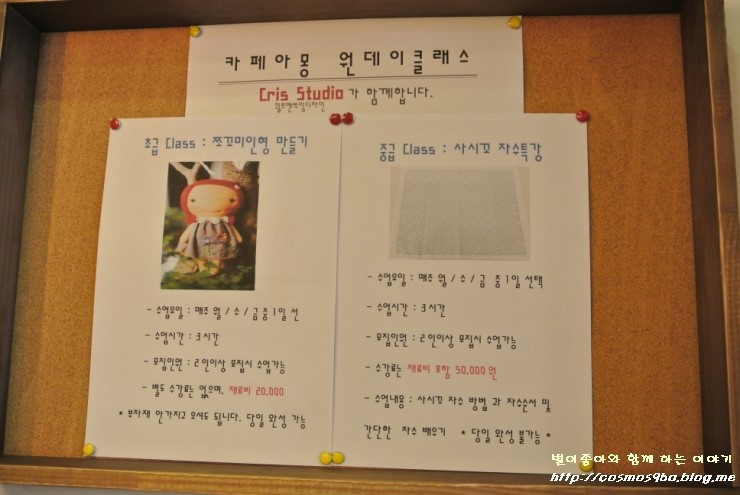 카페아몽 원데이클래스
Cris Studio가 함께합니다.
퀼트앤쏘잉디자인
초급 Class : 쪼꼬미인형 만들기
- 수업요일 : 매주 월 / 수 / 금 중 1일 선
- 수업시간 : 3시간
- 모집인원 : 2인이상 모집시 수업가능
- 별도 수강료는 없으며, 재료비 20,000
* 부자재 안가지고 오셔도 됩니다. 당일 완성 가능
중급 Class : 사시꼬 자수특강
- 수업요일 : 매주 월 / 수 / 금 중 1일 선택
- 수업시간 : 3시간
- 모집인원 : 2인이상 모집시 수업가능
- 수강료는 재료비 포함 50,000원
- 수업내용 : 사시꼬 자수 방법 과 자수순서 및
간단한 자수 배우기 * 당일 완성 불가능 *
별이좋아와 함께 하는 이야기
http://cosmos9ba.blog.me